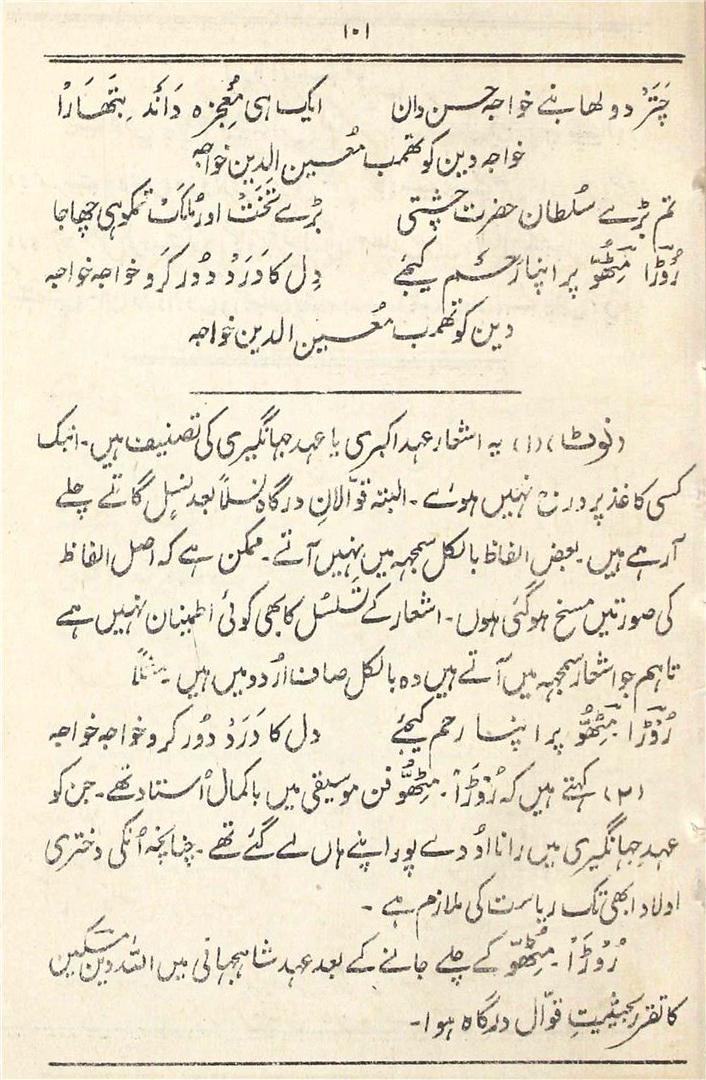 ۱۰۱
چَتَرْ دولھا بنے خواجہ حسن دان ایک ہی مُعْجِزہ دَانَدْ بَتَھارْا
خواجہ دین کو تھمب مُعین الدین خواجہ
تم بڑے سُلطان حضرت چشتی بڑے تَخَتْ اور مُلکَ تمکو ہی چھاجا
رُوَڑا مِٹھُّو پر اپنا رحم کیجئے دِل کا دَرَدْ دُور کرو خواجہ خواجہ
دین کو تھمب مُعین الدین خواجہ
(نوٹ) (۱) یہ اشعار عہد اکبری یا عہد جہانگیری کی تصنیف ہیں۔ ابتک
کسی کاغذ پر درج نہیں ہوئے۔ البتہ قوّالانِ درگاہ نسلاً بعد نسلٍ گاتے چلے
آرہے ہیں۔ بعض الفاظ بالکل سمجھ میں نہیں آتے۔ ممکن ہے کہ اصل الفاظ
کی صورتیں مسخ ہوگئی ہوں۔ اشعار کے تسلسل کا بھی کوئی اطمینان نہیں ہے
تاہم جو اشعار سمجھ میں آتے ہیں وہ بالکل صاف اُردو میں ہیں۔ مثلاً
رُوَڑا مِٹھُّو پر اپنا رحم کیجئے دل کا دَرَدْ دُور کرو خواجہ خواجہ
(۲) کہتے ہیں کہ رُوَڑَا۔ مِٹھُّو فن موسیقی میں باکمال اُستاد تھے۔ جن کو
عہدِ جہانگیری میں رانا اودے پور اپنے ہاں لے گئے تھے۔ چنانچہ اُنکی دختری
اولاد ابھی تک ریاست کی ملازم ہے۔
رُوَڑَا۔ مِٹھُّو کے چلے جانے کے بعد عہد شاہجہانی میں اللہ دین مسکین
کا تقرر بحیثیتِ قوّال درگاہ ہوا۔